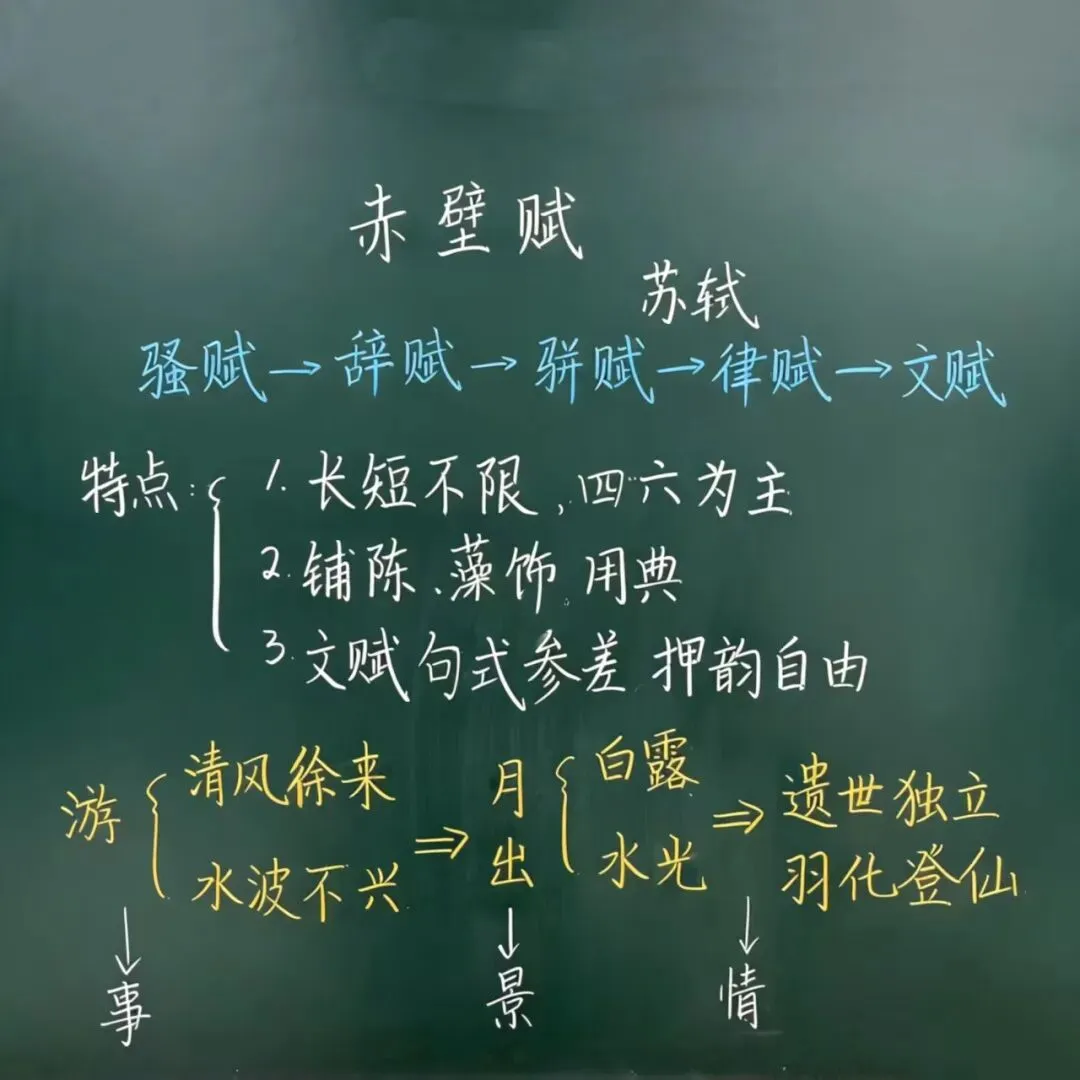 赤壁赋
苏轼
骚赋→辞赋→骈赋→律赋→文赋
特点:
1.长短不限,四六为主
2.铺陈、藻饰、用典
3.文赋句式参差 押韵自由
游
清风徐来
水波不兴
⇒
月出
白露
水光
⇒
遗世独立
羽化登仙
↓ ↓ ↓
事 景 情